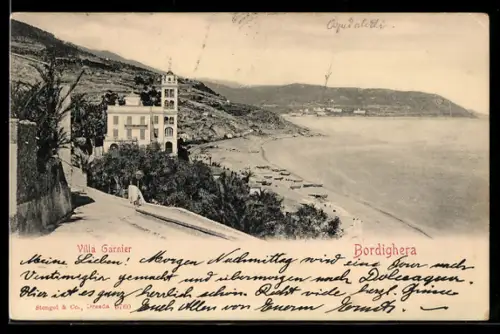 Villa Garnier
Bordighera
Meine Lieben! Morgen Nachmittag wird eine Tour nach
Ventimiglia gemacht und übermorgen nach Dolceaqua.
Hier ist es ganz herrlich schön. Recht viele herzl. Grüsse
Stengel & Co., Dresda
Euch Allen von Eurem Ernst.